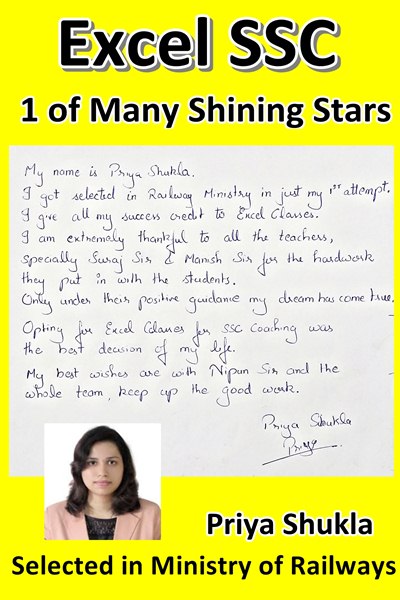 Excel SSC
1 of Many Shining Stars
My name is Priya Shukla.
I got selected in Railway Ministry in just my 1st attempt.
I give all my success credit to Excel Classes.
I am extremely thankful to all the teachers,
specially Suraj Sir & Manish Sir for the hardwork
they put in with the students.
Only under their positive guidance my dream has come true.
Opting for Excel Classes for SSC Coaching was
the best decision of my life.
My best wishes are with Nipun Sir and the
whole team, keep up the good work.
Priya Shukla
Priya
Priya Shukla
Selected in Ministry of Railways